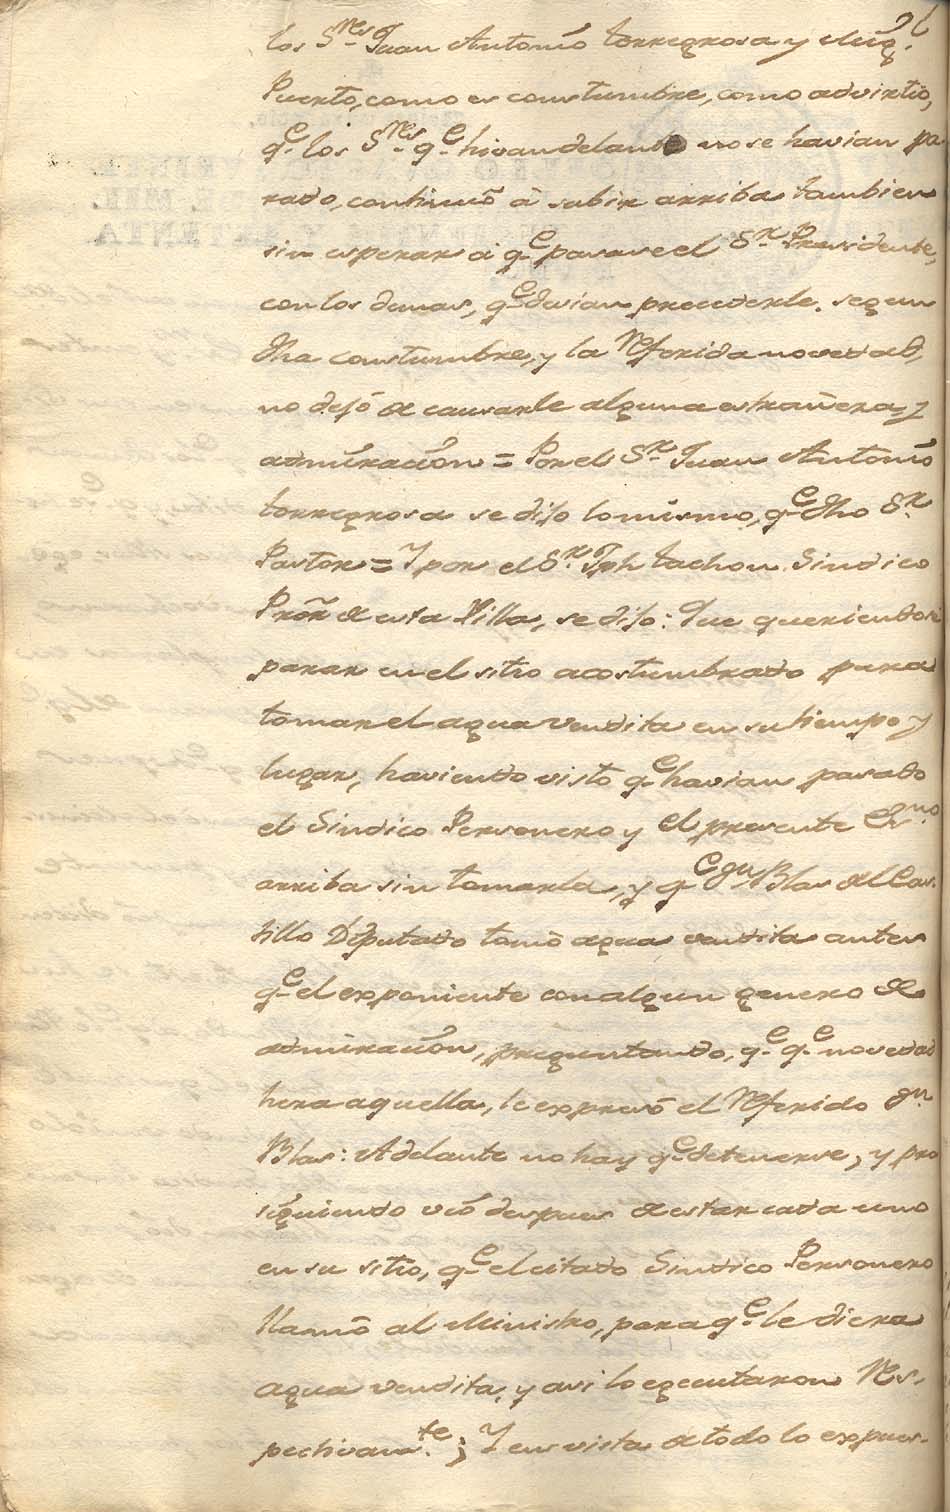 los S.res Juan Antonio torregrosa y Mig.l
Puerto, como es constumbre, como advirtio,
q.e los S.res q.e hivan delante no se havian pa
rado, continuó à subir arriba tambien
sin esperar a q.e pasase el S.r Presidente,
con los demas, q.e devian precederle, segun
dha constumbre, y la Referida novedad,
no dejó de causarle alguna estrañera, y
admiracion = Por el S.r Juan Antonio
torregrosa se dijo lo mismo, q.e dho S.r
Pastor = Y por el S.r Jph tachon Sindico
Pror de esta Villa, se dijo: Que queriendose
parar en el sitio acostumbrado para
tomar el agua vendita en su tiempo y
lugar, haviendo visto q.e havian pasado
el Sindico Personero y el presente Es.no
arriba sin tomarla, y q.e d.n Blas del Cas
tillo Diputado tomó agua vendita antes
q.e el exponiente con algun genero de
admiracion, preguntando, q.e q.e novedad
hera aquella, le expresó el Referido d.n
Blas: Adelante no hay q.e detenerse, y pro
siguiendo vió despues de estar cada uno
en su sitio, q.e el citado Sindico Personero
llamó al Ministro, para q.e le diera
agua vendita, y asi lo egecutaron Res-
pectivam.te; Y en vista de todo lo expues-